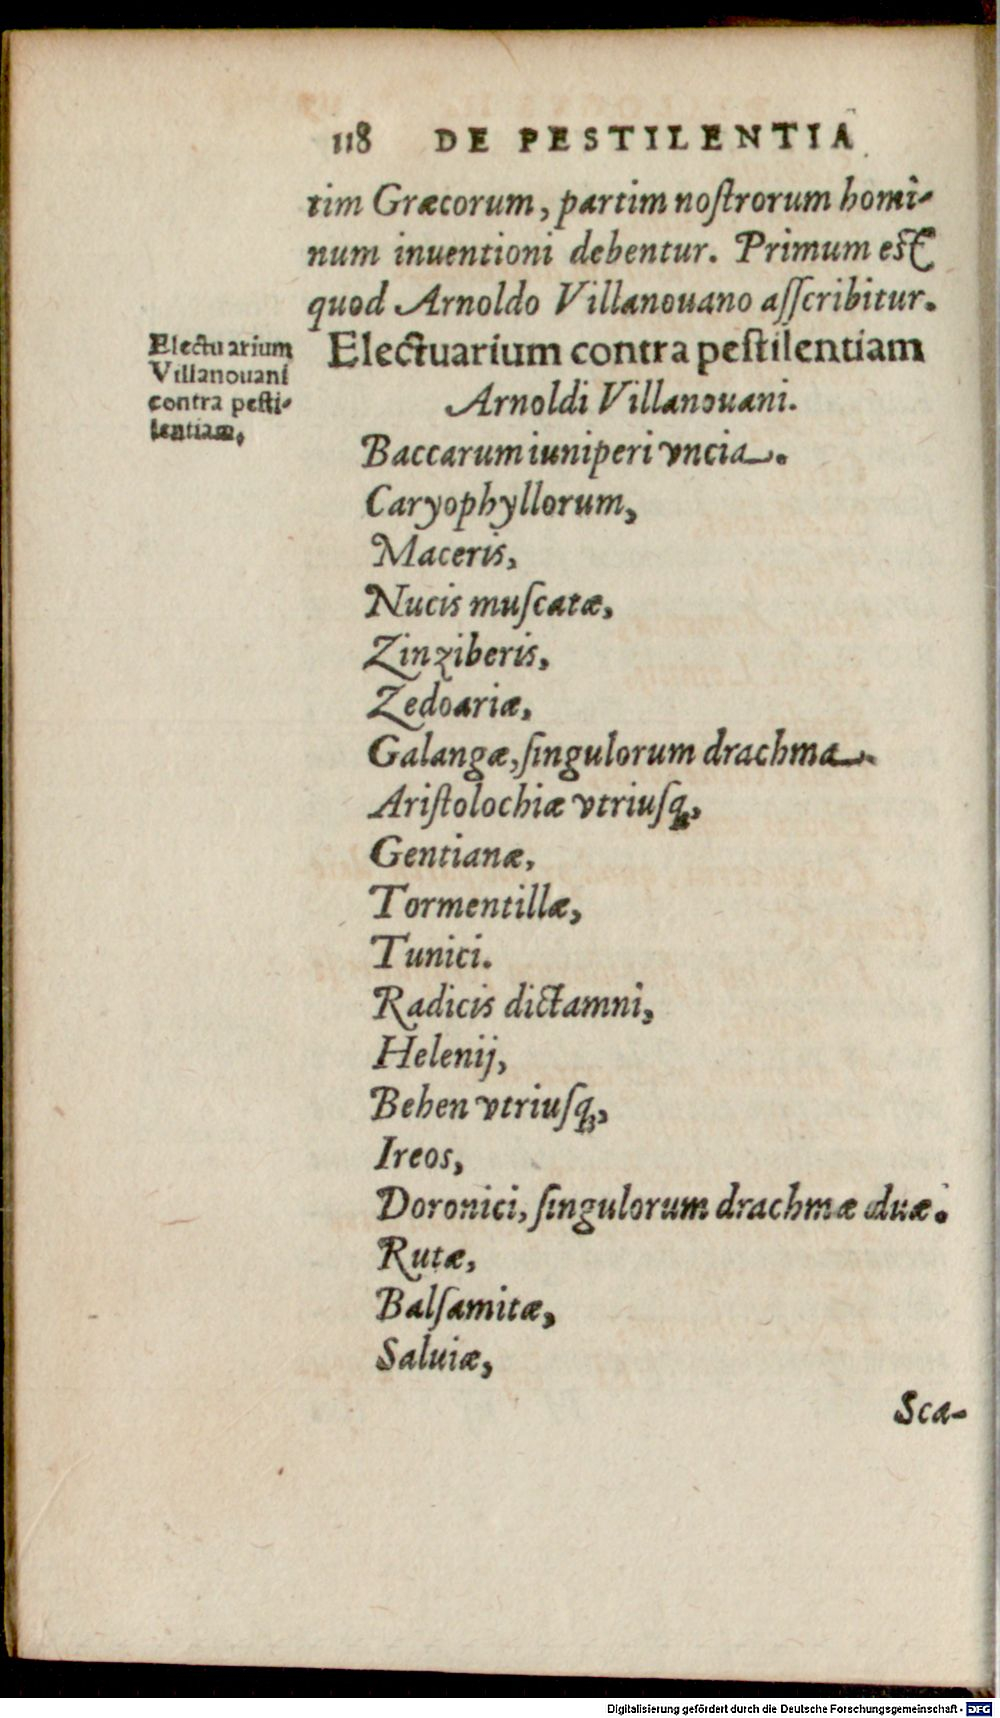 118 DE PESTILENTIA
tim Græcorum, partim noſtrorum homi-
num inuentioni debentur. Primum est
quod Arnoldo Villanouano aſſcribitur.
Electuarium
Villanouani
contra peſti-
lentiam.
Electuarium contra peſtilentiam
Arnoldi Villanouani.
Baccarum iuniperi vncia.
Caryophyllorum,
Maceris,
Nucis muſcatæ,
Zinziberis,
Zedoariæ,
Galangæ, ſingulorum drachma.
Ariſtolochiæ vtriuſq;,
Gentianæ,
Tormentillæ,
Tunici.
Radicis dictamni,
Helenij,
Behen vtriuſq;,
Ireos,
Doronici, ſingulorum drachmæ duæ.
Rutæ,
Balſamitæ,
Saluiæ,
Sca-
Digitalisierung gefördert durch die Deutsche Forschungsgemeinschaft - DFG